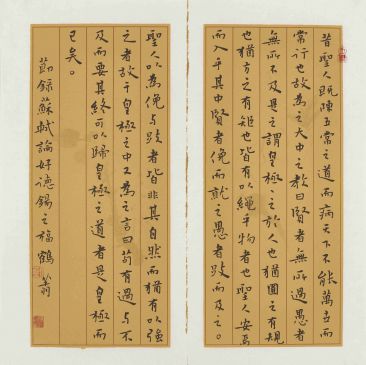 昔聖人既陳五常之道而病天下不能萬世而
常行也故為之大中之教曰賢者無所過愚者
無所不及是之謂皇極極之於人也猶圓之有規
也猶方之有矩也皆有以繩乎物者也聖人安焉
而入乎其中賢者俛而就之愚者跂而及之
聖人以為俛與跂者皆非其自然而猶有以強
之者故于皇極之中又為之言曰苟有過與不
及而要其終可以歸皇極之道者是皇極而
已矣
節錄蘇軾論好德錫之福 鶴翥